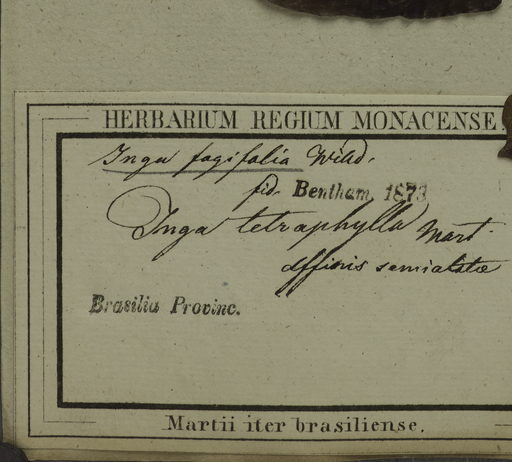 HERBARIUM REGIUM MONACENSE.
Inga fagifolia Willd.
fid. Bentham 1873
Inga tetraphylla Mart.
affinis semialatae
Brasilia Provinc.
Martii iter brasiliense.